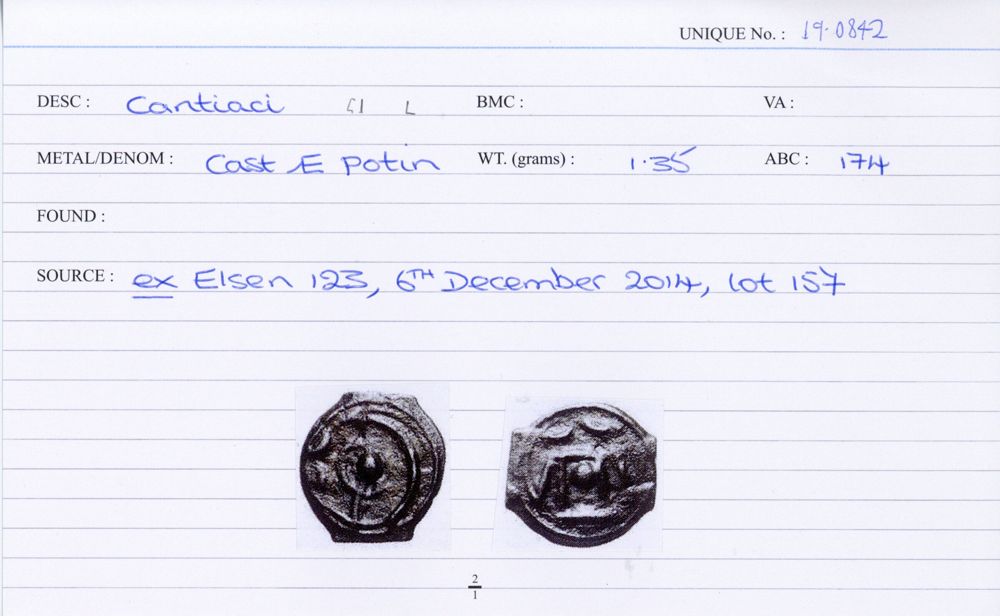 UNIQUE No. : 19.0842
DESC : Cantiaci L BMC : VA :
METAL/DENOM : Cast Æ Potin WT. (grams) : 1.35 ABC : 174
FOUND :
SOURCE : ex Elsen 123, 6TH December 2014, lot 157
2
1